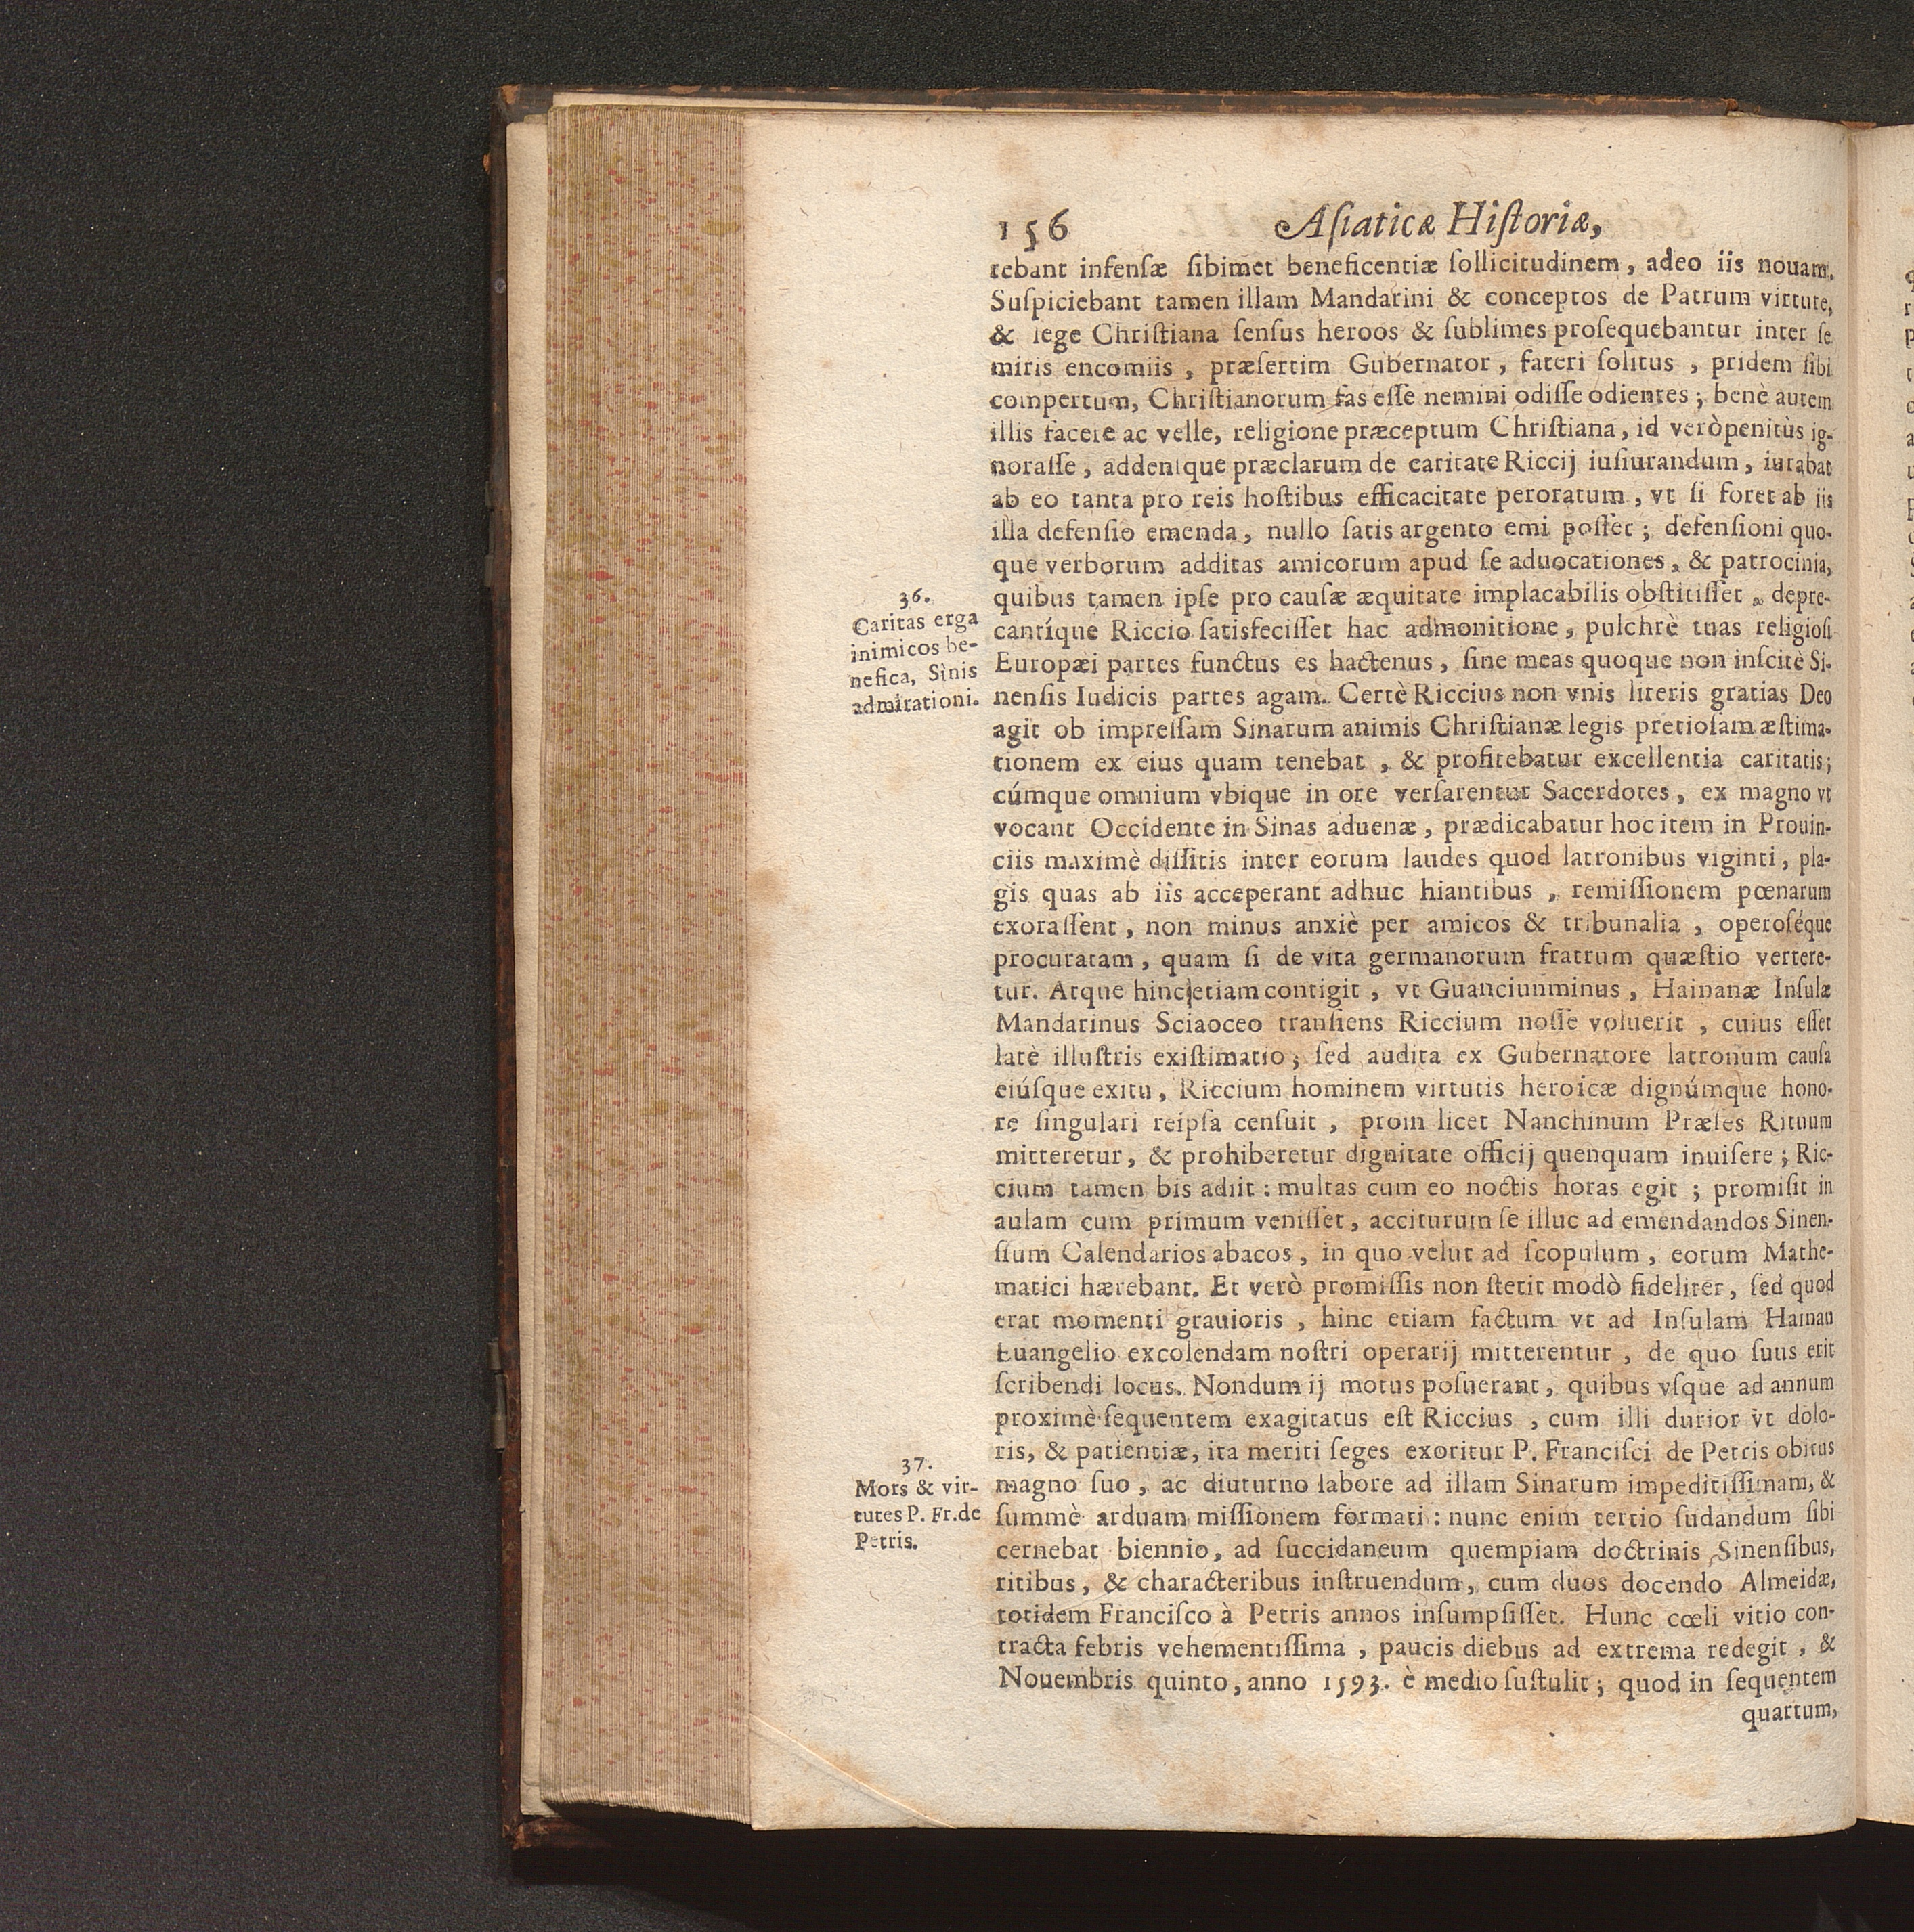 156 Aſiaticæ Hiſtoriæ,
tebant infenſæ ſibimet beneficentiæ ſollicitudinem, adeo iis nouam.
Suſpiciebant tamen illam Mandarini & conceptos de Patrum virtute,
& lege Chriſtiana ſenſus heroos & ſublimes proſequebantur inter ſe
miris encomiis, præſertim Gubernator, fateri ſolitus, pridem ſibi
compertum, Chriſtianorum fas eſſe nemini odiſſe odientes; benè autem
illis facere ac velle, religione præceptum Chriſtiana, id veròpenitùs ig-
noraſſe, addenſque præclarum de caritate Riccij iuſiurandum, iurabat
ab eo tanta pro reis hoſtibus efficacitate peroratum, vt ſi foret ab iis
illa defenſio emenda, nullo ſatis argento emi poſſet; defenſioni quo-
que verborum additas amicorum apud ſe aduocationes, & patrocinia,
quibus tamen ipſe pro cauſæ æquitate implacabilis obſtitiſſet, depre-
cantíque Riccio ſatisfeciſſet hac admonitione, pulchrè tuas religioſi
Europæi partes functus es hactenus, ſine meas quoque non inſcitè Si-
nenſis Iudicis partes agam. Certè Riccius non vnis literis gratias Deo
agit ob impreſſam Sinarum animis Chriſtianæ legis pretioſam æſtima-
tionem ex eius quam tenebat, & profitebatur excellentia caritatis;
cúmque omnium vbique in ore verſarentur Sacerdotes, ex magno vt
vocant Occidente in Sinas aduenæ, prædicabatur hoc item in Prouin-
ciis maximè diſſitis inter eorum laudes quod latronibus viginti, pla-
gis quas ab iis acceperant adhuc hiantibus, remiſſionem pœnarum
exoraſſent, non minus anxiè per amicos & tribunalia, operoſéque
procuratam, quam ſi de vita germanorum fratrum quæſtio vertere-
tur. Atque hinc etiam contigit, vt Guanciunminus, Hainanæ Inſulæ
Mandarinus Sciaoceo tranſiens Riccium noſſe voluerit, cuius eſſet
latè illuſtris exiſtimatio; ſed audita ex Gubernatore latronum cauſa
eiúſque exitu, Riccium hominem virtutis heroicæ dignúmque hono-
re ſingulari reipſa cenſuit, proin licet Nanchinum Præſes Rituum
mitteretur, & prohiberetur dignitate officij quenquam inuiſere; Ric-
cium tamen bis adiit: multas cum eo noctis horas egit; promiſit in
aulam cum primum veniſſet, acciturum ſe illuc ad emendandos Sinen-
ſium Calendarios abacos, in quo velut ad ſcopulum, eorum Mathe-
matici hærebant. Et verò promiſſis non ſtetit modò fideliter, ſed quod
erat momenti grauioris, hinc etiam factum vt ad Inſulam Hainan
Euangelio excolendam noſtri operarij mitterentur, de quo ſuus erit
ſcribendi locus. Nondum ij motus poſuerant, quibus vſque ad annum
proximè ſequentem exagitatus eſt Riccius, cum illi durior vt dolo-
ris, & patientiæ, ita meriti ſeges exoritur P. Franciſci de Petris obitus
magno ſuo, ac diuturno labore ad illam Sinarum impeditiſſimam, &
ſummè arduam miſſionem formati: nunc enim tertio ſudandum ſibi
cernebat biennio, ad ſuccidaneum quempiam doctrinis Sinenſibus,
ritibus, & characteribus inſtruendum, cum duos docendo Almeidæ,
totidem Franciſco à Petris annos inſumpſiſſet. Hunc cœli vitio con-
tracta febris vehementiſſima, paucis diebus ad extrema redegit, &
Nouembris quinto, anno 1593. è medio ſuſtulit; quod in ſequentem
quartum,
36.
Caritas erga
inimicos be-
nefica, Sinis
admirationi.
37.
Mors & vir-
tutes P. Fr. de
Petris.